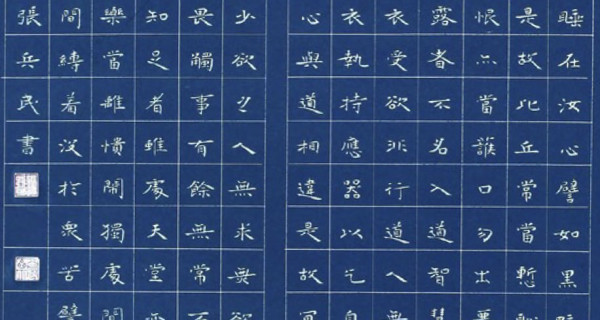 睡在汝心譬如黑
是故比丘常當慙
恨亦當護口勿出
露者不名入道智慧
衣受欲非行道人無
衣執持應器以乞自
心與道相違是故
少欲之人無求無欲
畏觸事有餘無常不
知足者雖處天堂
樂當離憒閙獨處閒
間縛着沒於衆苦譬
張兵民書